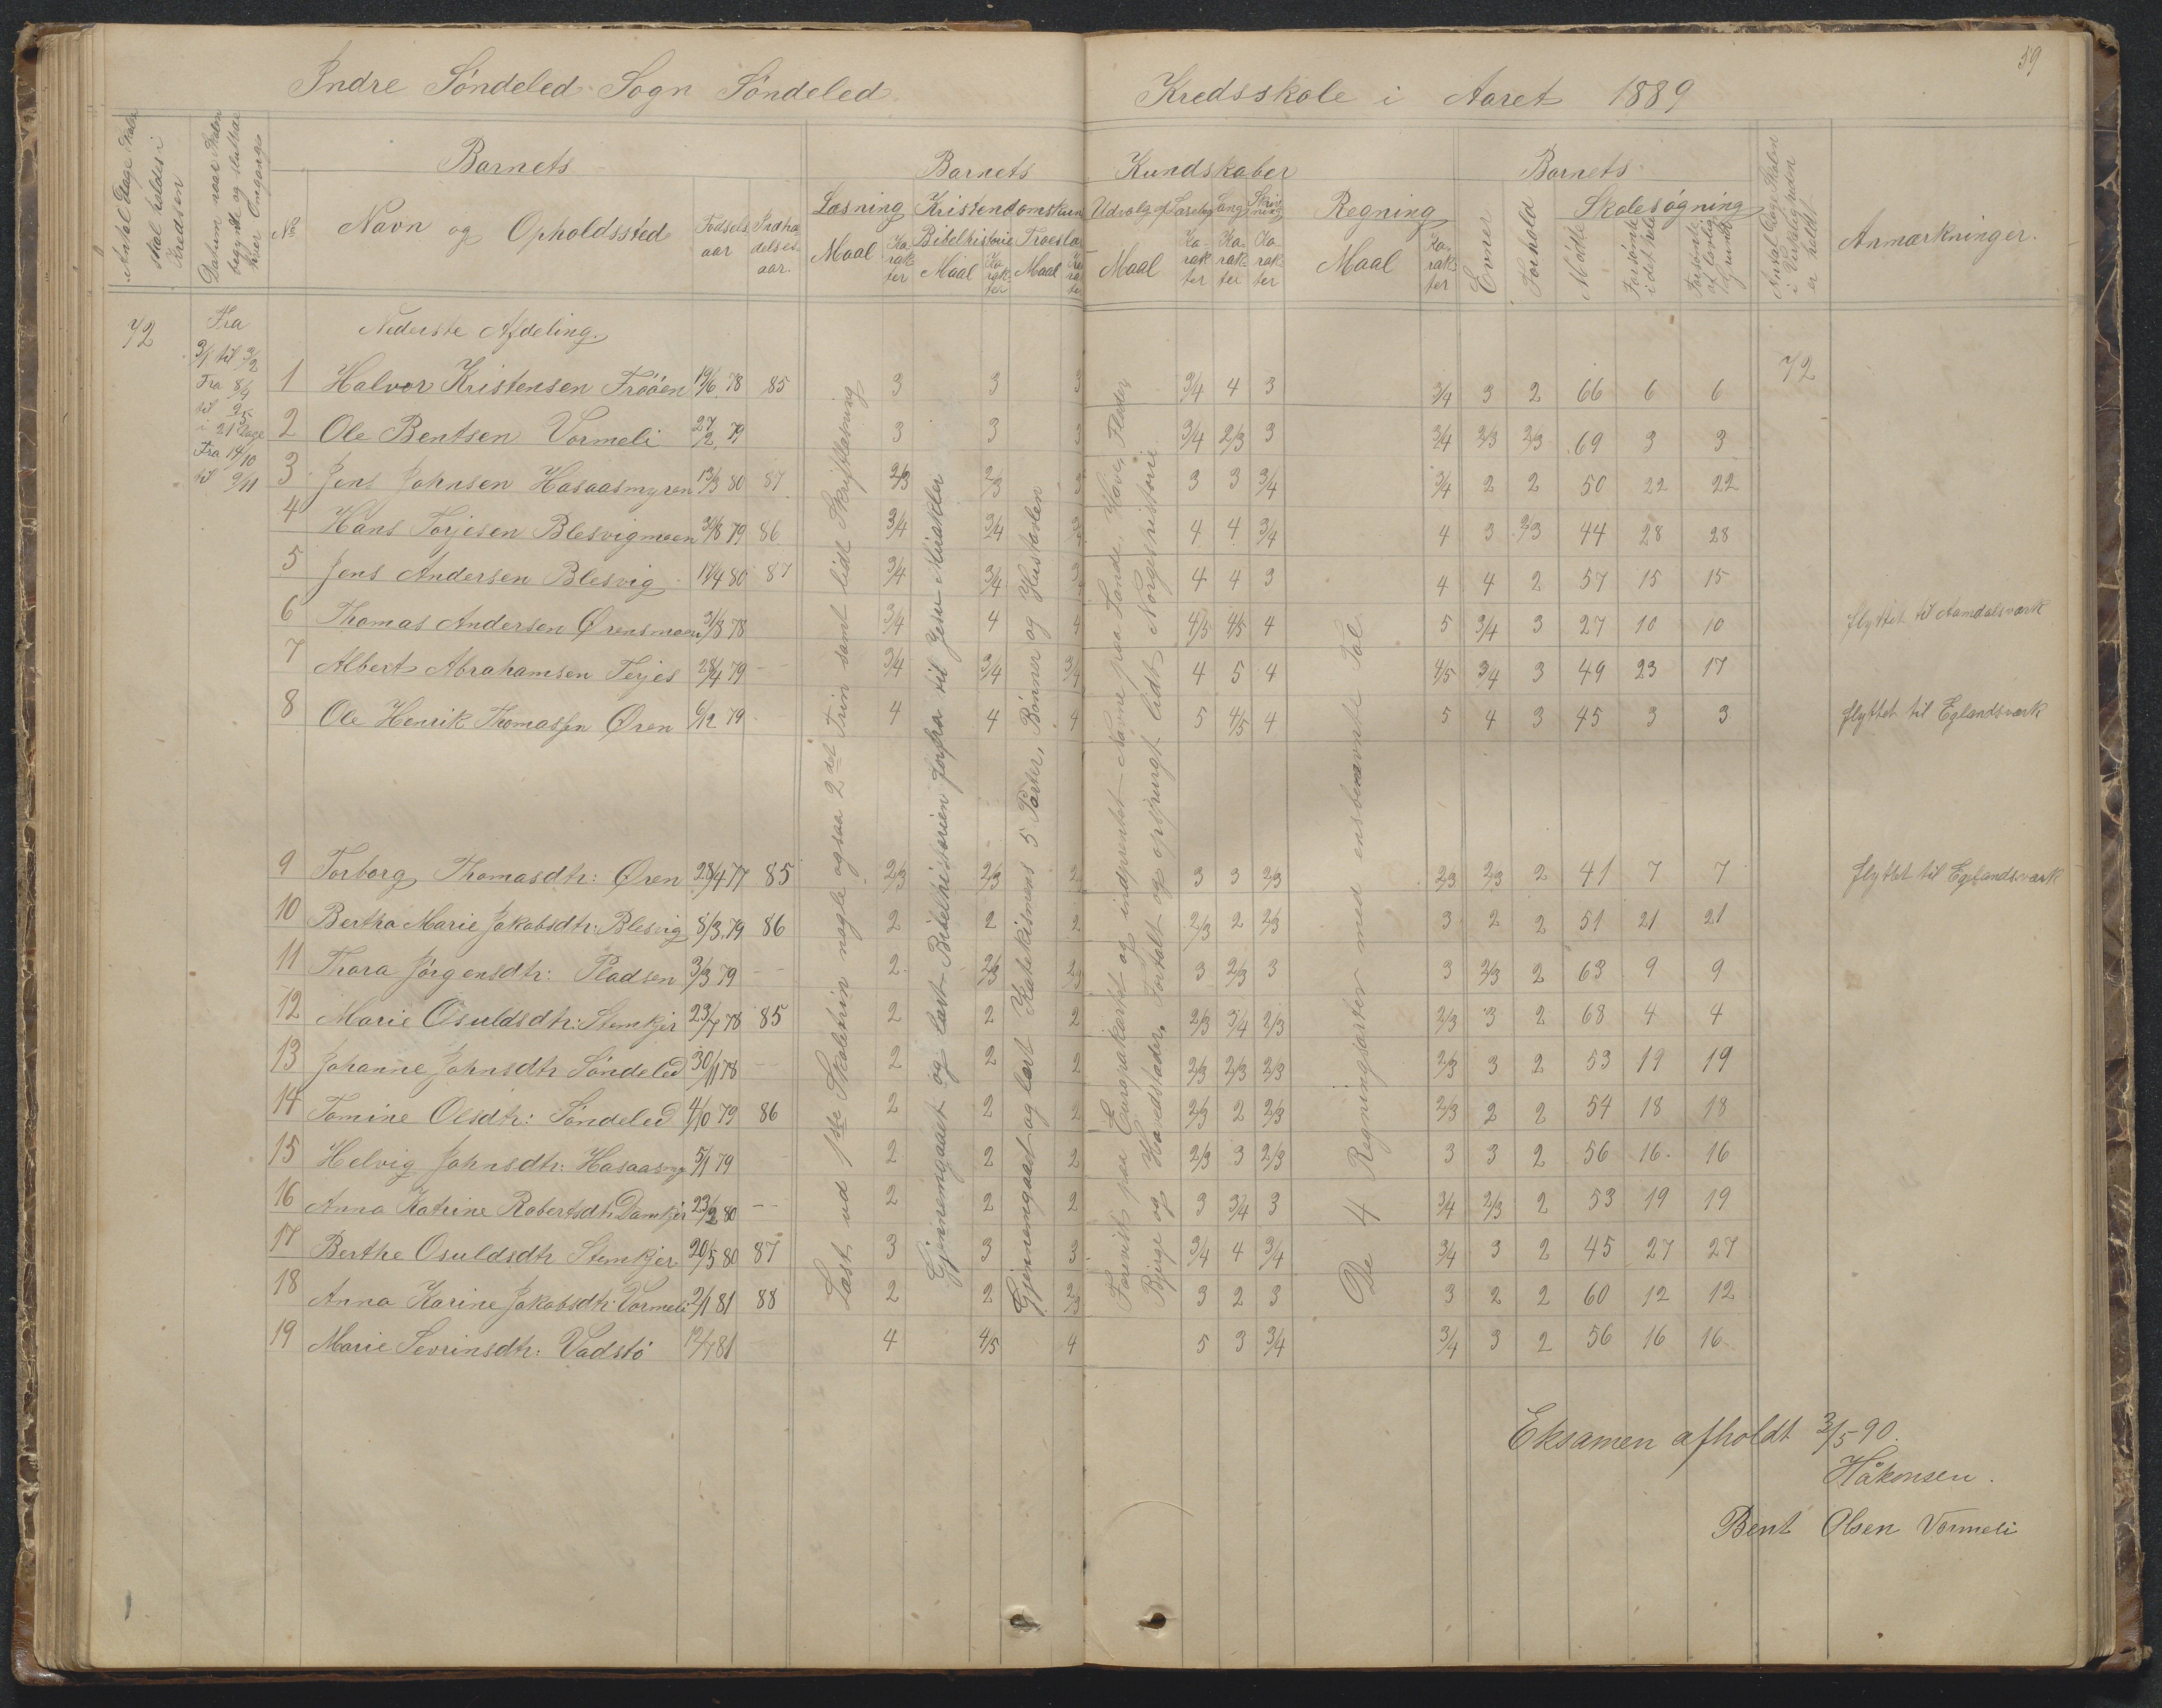 59
Indre Söndeled Sogn Söndeled Kredsskole i Aaret 1889
Antal Dage Skolen skal holdes i Kredsen
Datum naar Skolen begyndte og sluttede hver Omgang
No
Barnets
Navn og Opholdssted
Födselsaar
Indtrædelsesaar.
Barnets Kundskaber
Læsning
Maal
Karakter
Kristendomskundskab
Bibelhistorie
Maal
Karakter
Troeslære
Maal
Karakter
Udvalg af Læsebog
Maal
Karakter
Sang
Karakter
Skrivning
Karakter
Regning
Maal
Karakter
Barnets
Evner
Forhold
Skolesögning
Mödte
Forsömte i det hele
Forsömte af lovlig Grund
Antal Dage Skolen i Virkeligheden er holdt
Anmærkninger.
72
Fra
3/1 til 2/2
Fra 8/4
til 2/5
i 21 Dage
Fra 14/10
til 9/11
Nederste Afdeling.
72
1 Halvor Kristensen Fröåen 19/6 78 85 3 3 3 3/4 4 3 3/4 3 2 66 6 6
2 Ole Bentsen Vormeli 27/2 79 3 3 3 3/4 2/3 3 3/4 2/3 2/3 69 3 3
3 Jens Johnsen Hasaasmyren 13/3 80 87 2/3 2/3 3 3 3 3/4 3/4 2 2 50 22 22
4 Hans Torjesen Blesvigmoen 31/8 79 86 3/4 3/4 3/4 4 4 3/4 4 3 2/3 44 28 28
5 Jens Andersen Blesvig 17/4 80 87 3/4 3/4 3/4 4 4 3 4 4 2 57 15 15
6 Thomas Andersen Örensmoen 31/8 78 3/4 4 4 4/5 4/5 4 5 3/4 3 27 10 10 flyttet til Aamdalsværk
7 Albert Abrahamsen Terjes 28/4 79 -- 3/4 3/4 3/4 4 5 4 4/5 3/4 3 49 23 17
8 Ole Henrik Thomassen Øren 6/12 79 4 4 4 5 4/5 4 5 4 3 45 3 3 flyttet til Eglandsværk
9 Torborg Thomasdtr: Øren 28/4 77 85 2/3 2/3 2 3 3 2/3 2/3 2/3 2 41 7 7 flyttet til Eglandsværk
10 Bertha Marie Jakobsdtr: Blesvig 8/3 79 86 2 2 2 2/3 2 2/3 3 2 2 51 21 21
11 Thora Jörgensdtr: Pladsen 3/3 79 -- 2 2/3 2/3 3 2/3 3 3 2/3 2 63 9 9
12 Marie Osuldsdtr: Stemkjer 23/7 78 85 2 2 2 2/3 3/4 2/3 2/3 3 2 68 4 4
13 Johanne Johnsdtr Söndeled 30/11 78 -- 2 2 2 2/3 2/3 2/3 2/3 3 2 53 19 19
14 Tomine Olsdtr: Söndeled 4/10 79 86 2 2 2 2/3 2 2/3 2/3 2 2 54 18 18
15 Helvig Johnsdtr: Hasaasmy 5/1 79 2 2 2 2/3 3 2/3 3 3 2 56 16 16
16 Anna Katrine Robertsdtr. Damkjer 23/2 80 -- 2 2 2 3 3/4 3 3/4 2/3 2 53 19 19
17 Berthe Osuldsdtr Stemkjer 20/5 80 87 3 3 3 3/4 4 3/4 3/4 3 2 45 27 27
18 Anna Karine Jakobsdtr: Vormeli 2/1 81 88 2 2 2/3 3 2 3 3 2 2 60 12 12
19 Marie Sevrinsdtr: Vadstö 12/7 81 4 4/5 4 5 3 3/4 3/4 3 2 56 16 16
Læst ud 1ste Skoletrin nogle ogsaa 2det Trin samt lidt Skriftlæsning
Gjennemgaaet og lært Bibelhistorien forfra til Jesu Mirakler
Gjennemgaaet og lært Katekismens 5 Parter, Bönner og Hustavlen
Forevist paa Europakartet og indprentet Navne paa Lande, Have, Floder
Bjerge og Hovedstæder. Fortalt og opspurgt lidt Norgeshistorie
De 4 Regningsarter med ensbenævnte Tal.
Eksamen afholdt 3/5 90.
Håkonsen.
Bent Olsen Vormeli